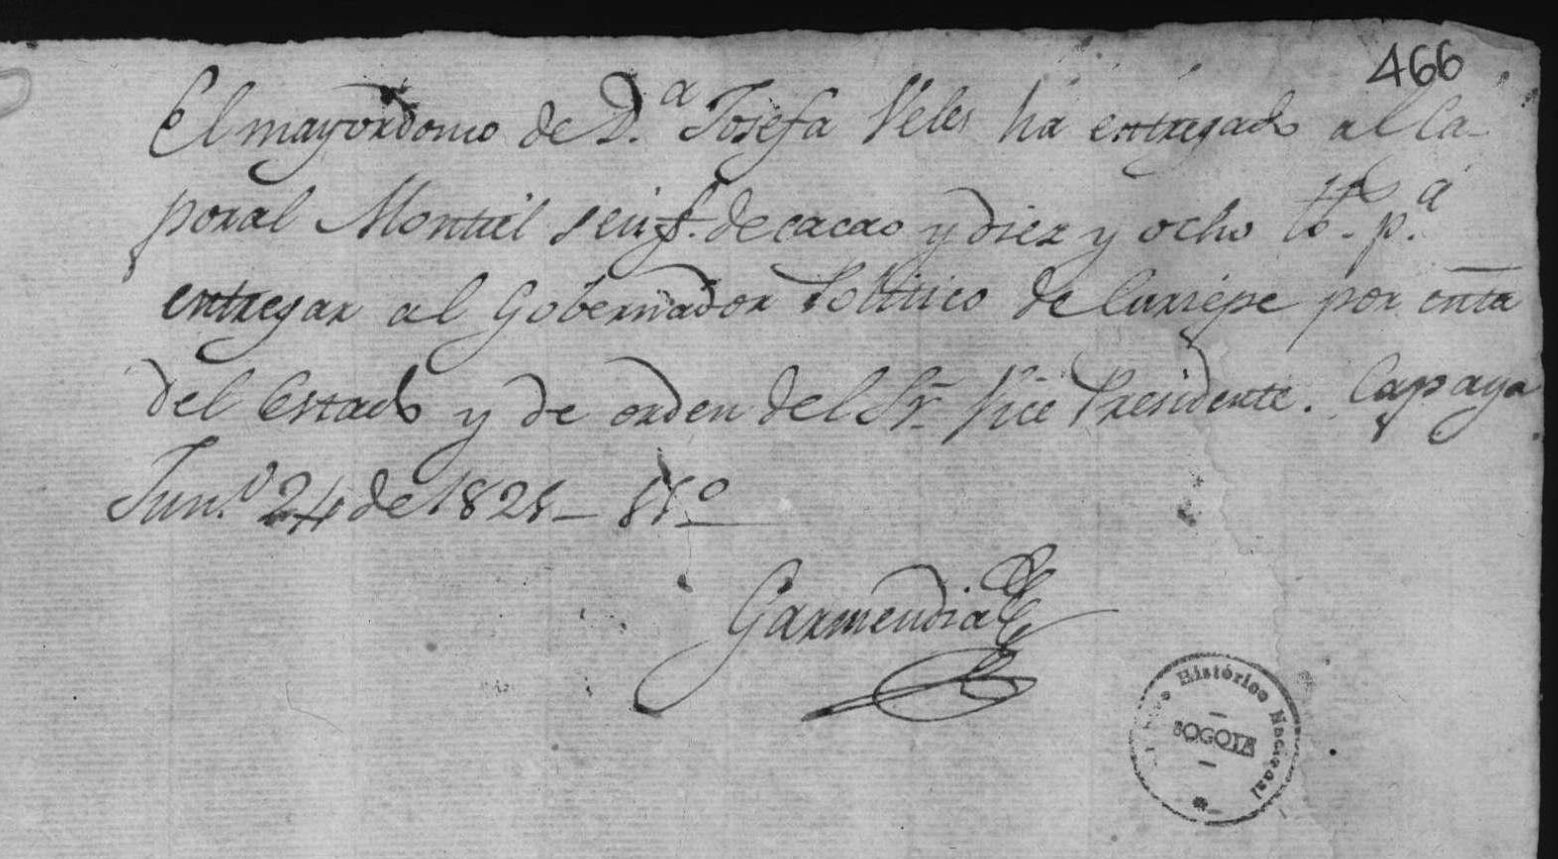 466
El mayordomo de D.ª Josefa Veles ha entregado al Ca-
poral Montiel seis f. de cacao y diez y ocho lb. p.ª
entregar al Gobernador Politico de Curiepe por cnta
del Estado y de orden del Sr. Vice Presidente. Capaya
Jun.º 24 de 1821 - 11º
Garmendia
Histórico Nacional
BOGOTA